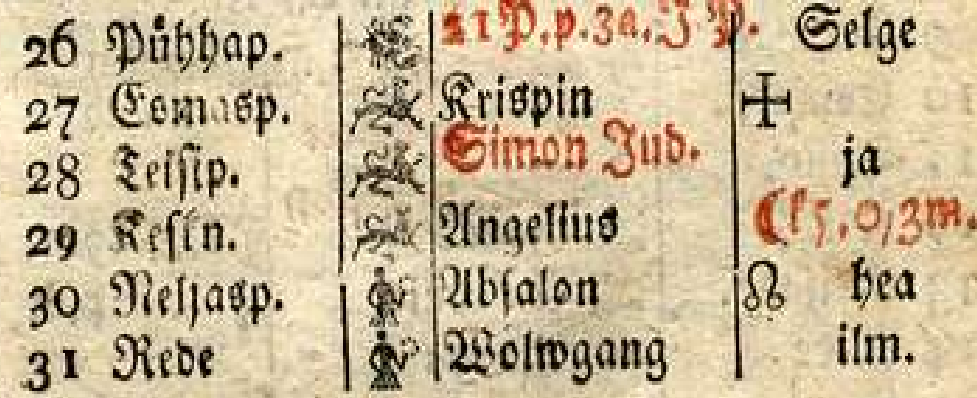 26 Pühhap. 21 P. p. 3a. J P. Selge
27 Esmasp. Krispin
28 Teisip. Simon Jud. ja
29 Keskn. Angelius k 5, 0, 3m.
30 Neljasp. Absalon hea
31 Rede Wolwgang ilm.